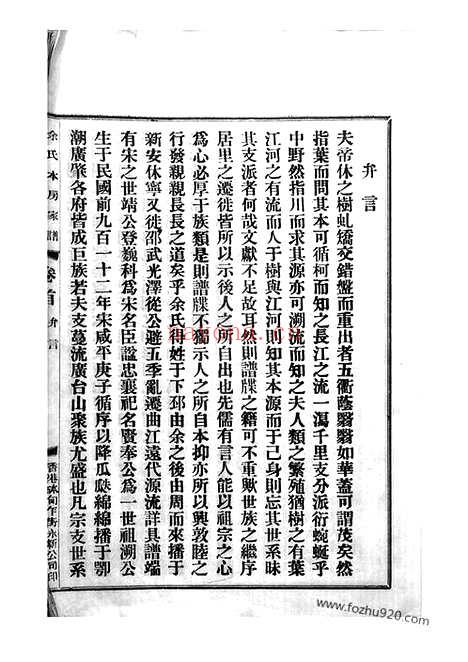 弁言
夫帝休之樹虬矯交錯盤而重出者五衢蔭翳翳如華蓋可謂茂矣然
指葉而問其本可循柯而知之長江之流一瀉千里支分派衍蜿蜒乎
中野然指川而求其源亦可溯流而知之夫人類之繁殖猶樹之有葉
江河之有流而人于樹與江河則知其本源而于己身則忘其世系昧
其支派者何哉文獻不足故耳然則譜牒之籍可不重歟世族之繼序
居里之遷徙皆所以示後人之所自出也先儒有言人能以祖宗之心
爲心必厚于族類是則譜牒不獨示人之所自本抑亦所以興敦睦之
行發親親長長之道矣乎余氏受姓于下邳由余之後由周而來播于
新安休寧又徙邵武光澤從公避五季亂遷曲江遠代源流詳具譜端
有宋之世靖公登巍科爲宋名臣諡忠襄祀名賢奉公爲一世祖溯公
生于民國前九百一十二年宋咸平庚子循序以降瓜瓞綿綿播于鄂
潮廣肇各府皆成巨族若夫支蔓流廣台山聚族尤盛也凡宗支世系
余氏本房家譜 卷首 弁言
香港砵甸乍街永新公司印
harono.com
www.fozhu920.com